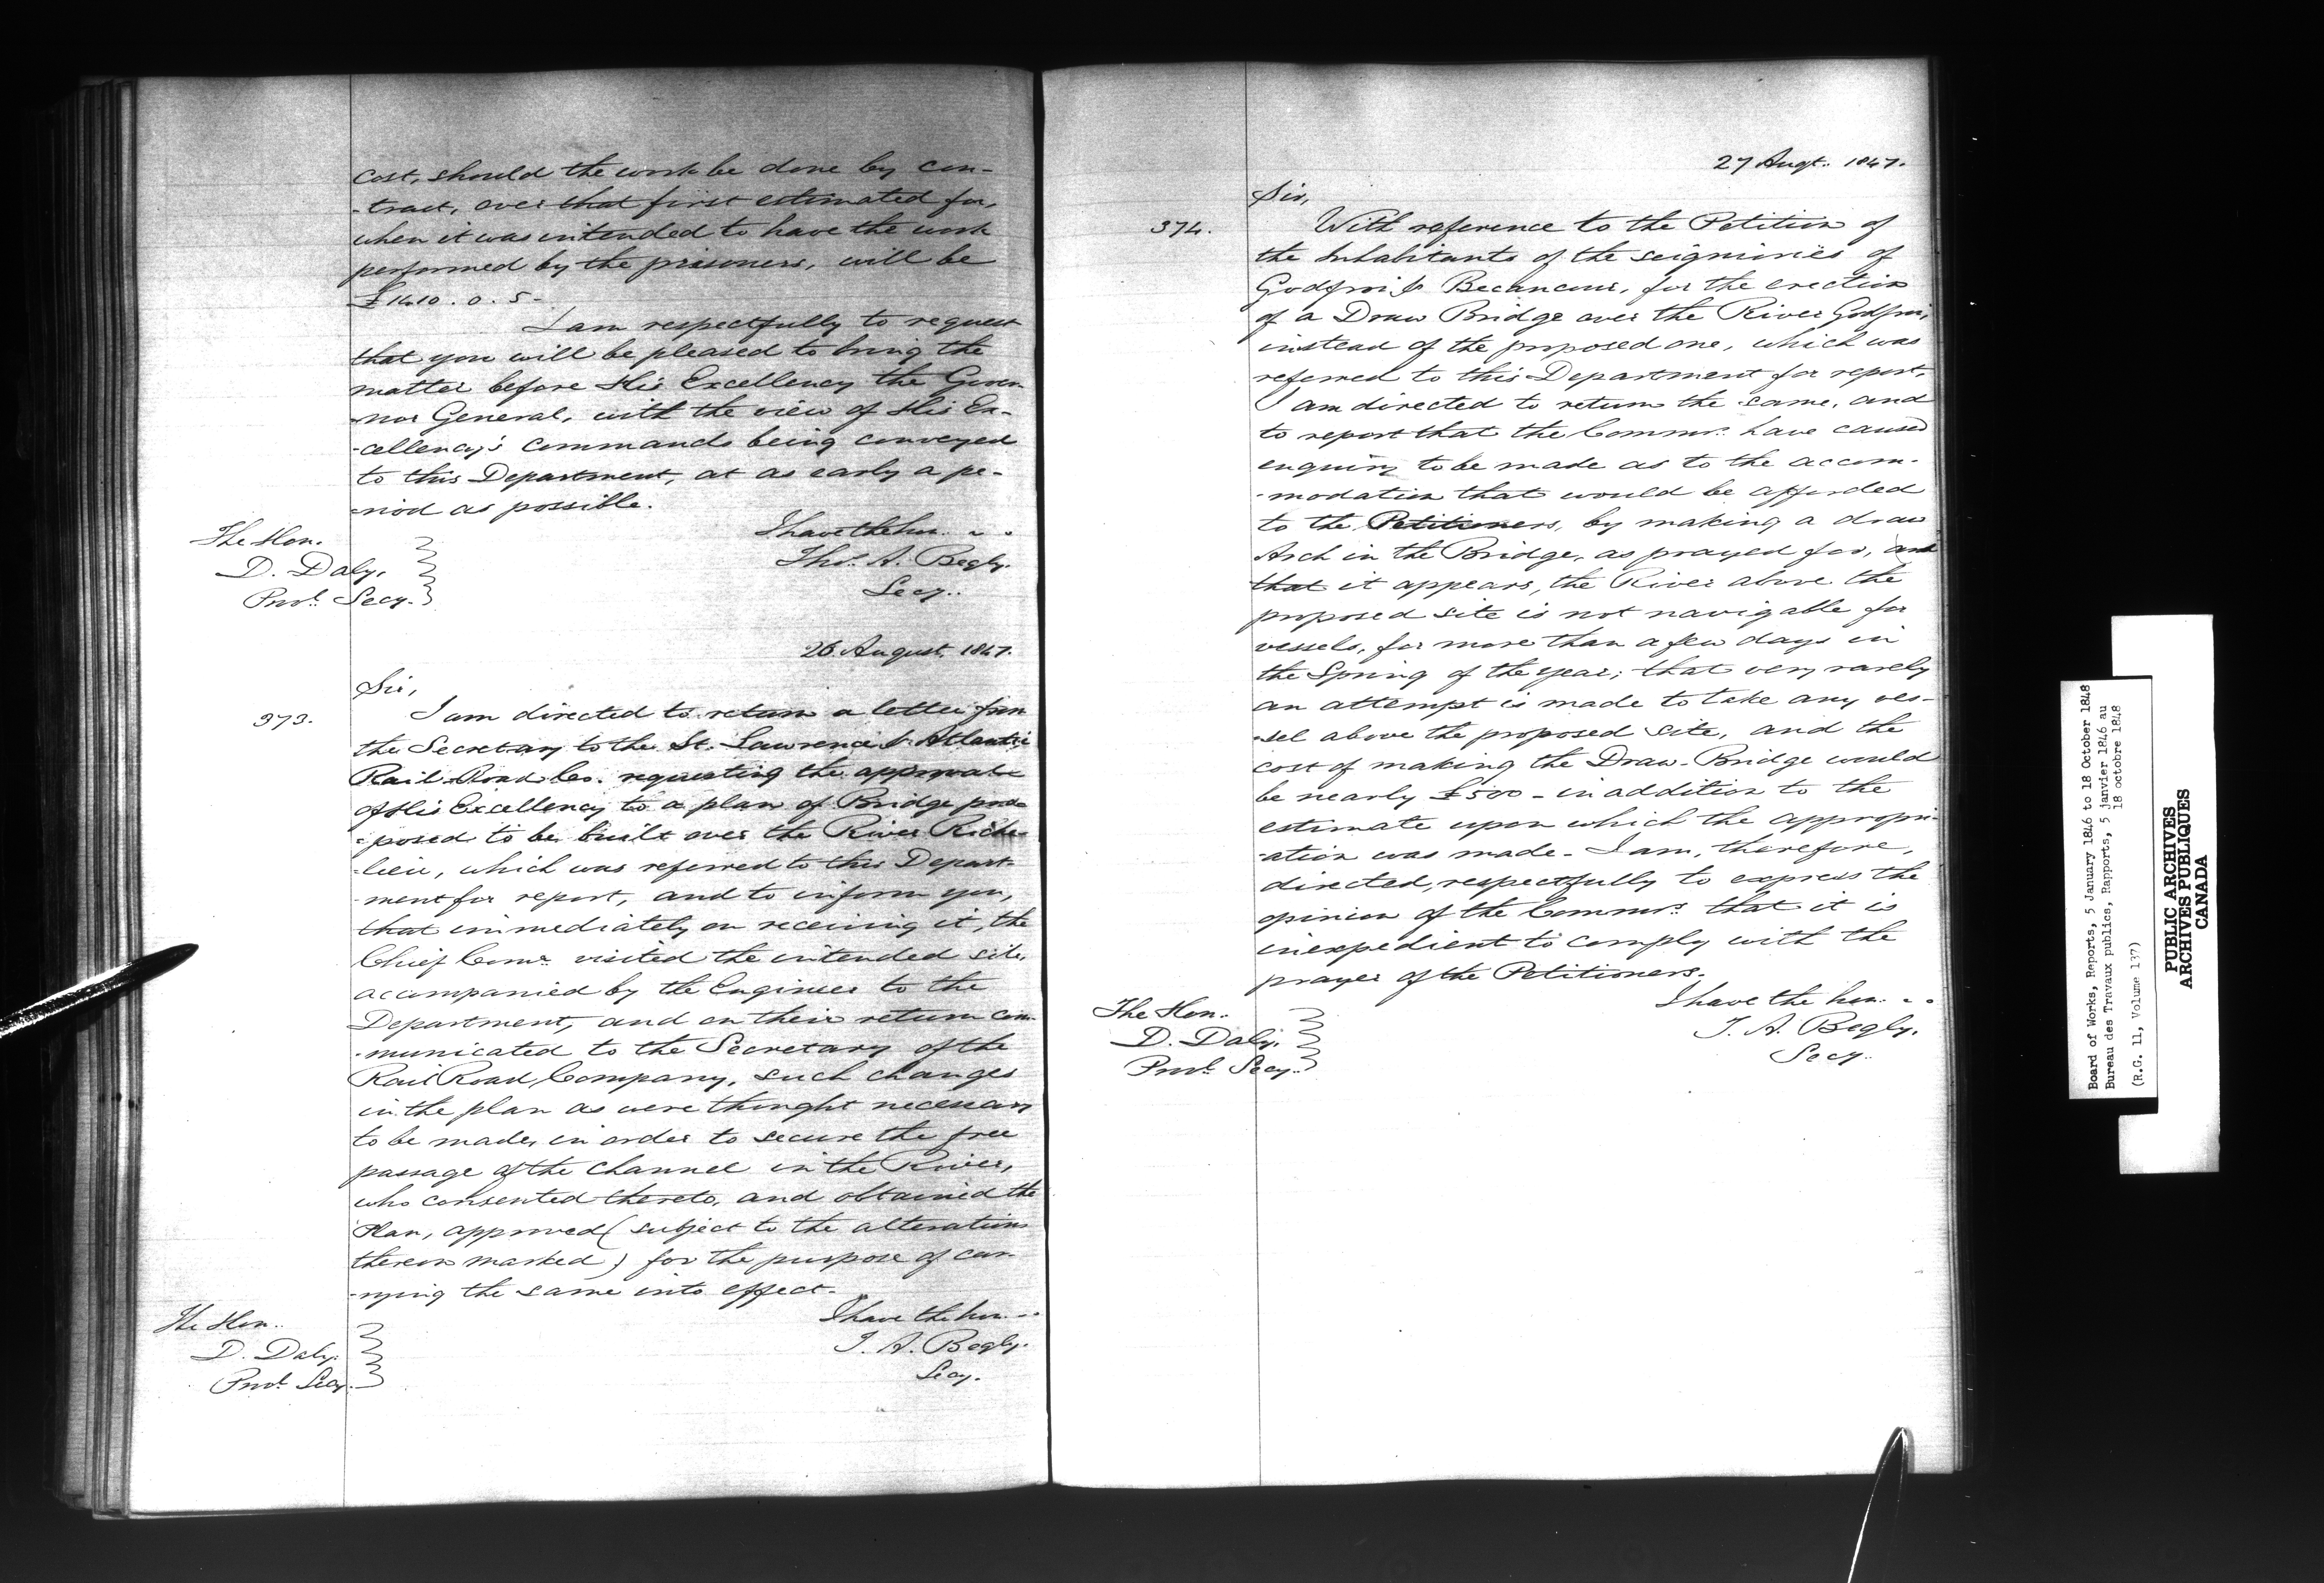 cost, should the work be done by con-
-tract, over that first estimated for,
when it was intended to have the work
performed by the prisoners, will be
£1410.0.5-
I am respectfully to request
that you will be pleased to bring the
matter before His Excellency the Gover
-nor General, with the view of His Ex-
-cellency's commands being conveyed
to this Department, at as early a pe-
-riod as possible.
I have the hon.
Thos. A. Begly.
Secy.
The Hon.
D. Daly,
Provl. Secy.
26 August, 1847.
Sir,
373.
I am directed to return a letter from
the Secretary to the St. Lawrence & Atlantic
Rail Road Co. requesting the approval
of His Excellency to a plan of Bridge pro-
-posed to be built over the River Riche-
-lieu, which was referred to this Depart-
-ment for report, and to inform you,
that immediately on receiving it, the
Chief Comr. visited the intended site,
accompanied by the Engineer to the
Department, and on their return com-
-municated to the Secretary of the
Rail Road Company, such changes
in the plan as were thought necessary
to be made, in order to secure the free
passage of the Channel in the River,
who consented thereto, and obtained the
Plan, approved (subject to the alterations
thereon marked) for the purpose of car-
-rying the same into effect.
I have the hon.
T. A. Begly.
Secy.
The Hon.
D. Daly.
Provl. Secy.
27 Augt. 1847.
Sir,
374.
With reference to the Petition of
the Inhabitants of the seigniories of
Godfroi & Becancour, for the erection
of a Draw Bridge over the River Godfroi,
instead of the proposed one, which was
referred to this Department for report,
I am directed to return the same, and
to report that the Commrs. have caused
enquiry to be made as to the accom-
-modation that would be afforded
to the Petitioners, by making a draw
Arch in the Bridge, as prayed for, and
that it appears, the River above the
proposed site is not navigable for
vessels, for more than a few days in
the Spring of the year; that very rarely
an attempt is made to take any ves-
-sel above the proposed site, and the
cost of making the Draw-Bridge would
be nearly £500 - in addition to the
estimate upon which the appropri-
-ation was made - I am, therefore,
directed, respectfully to express the
opinion of the Commrs. that it is
inexpedient to comply with the
prayer of the Petitioners.
I have the hon.
T. A. Begly.
Secy.
The Hon.
D. Daly.
Provl. Secy.
Board of Works, Reports, 5 January 1846 to 18 October 1848
Bureau des Travaux publics, Rapports, 5 janvier 1846 au
18 octobre 1848
(R.G. 11, Volume 137)
PUBLIC ARCHIVES
ARCHIVES PUBLIQUES
CANADA